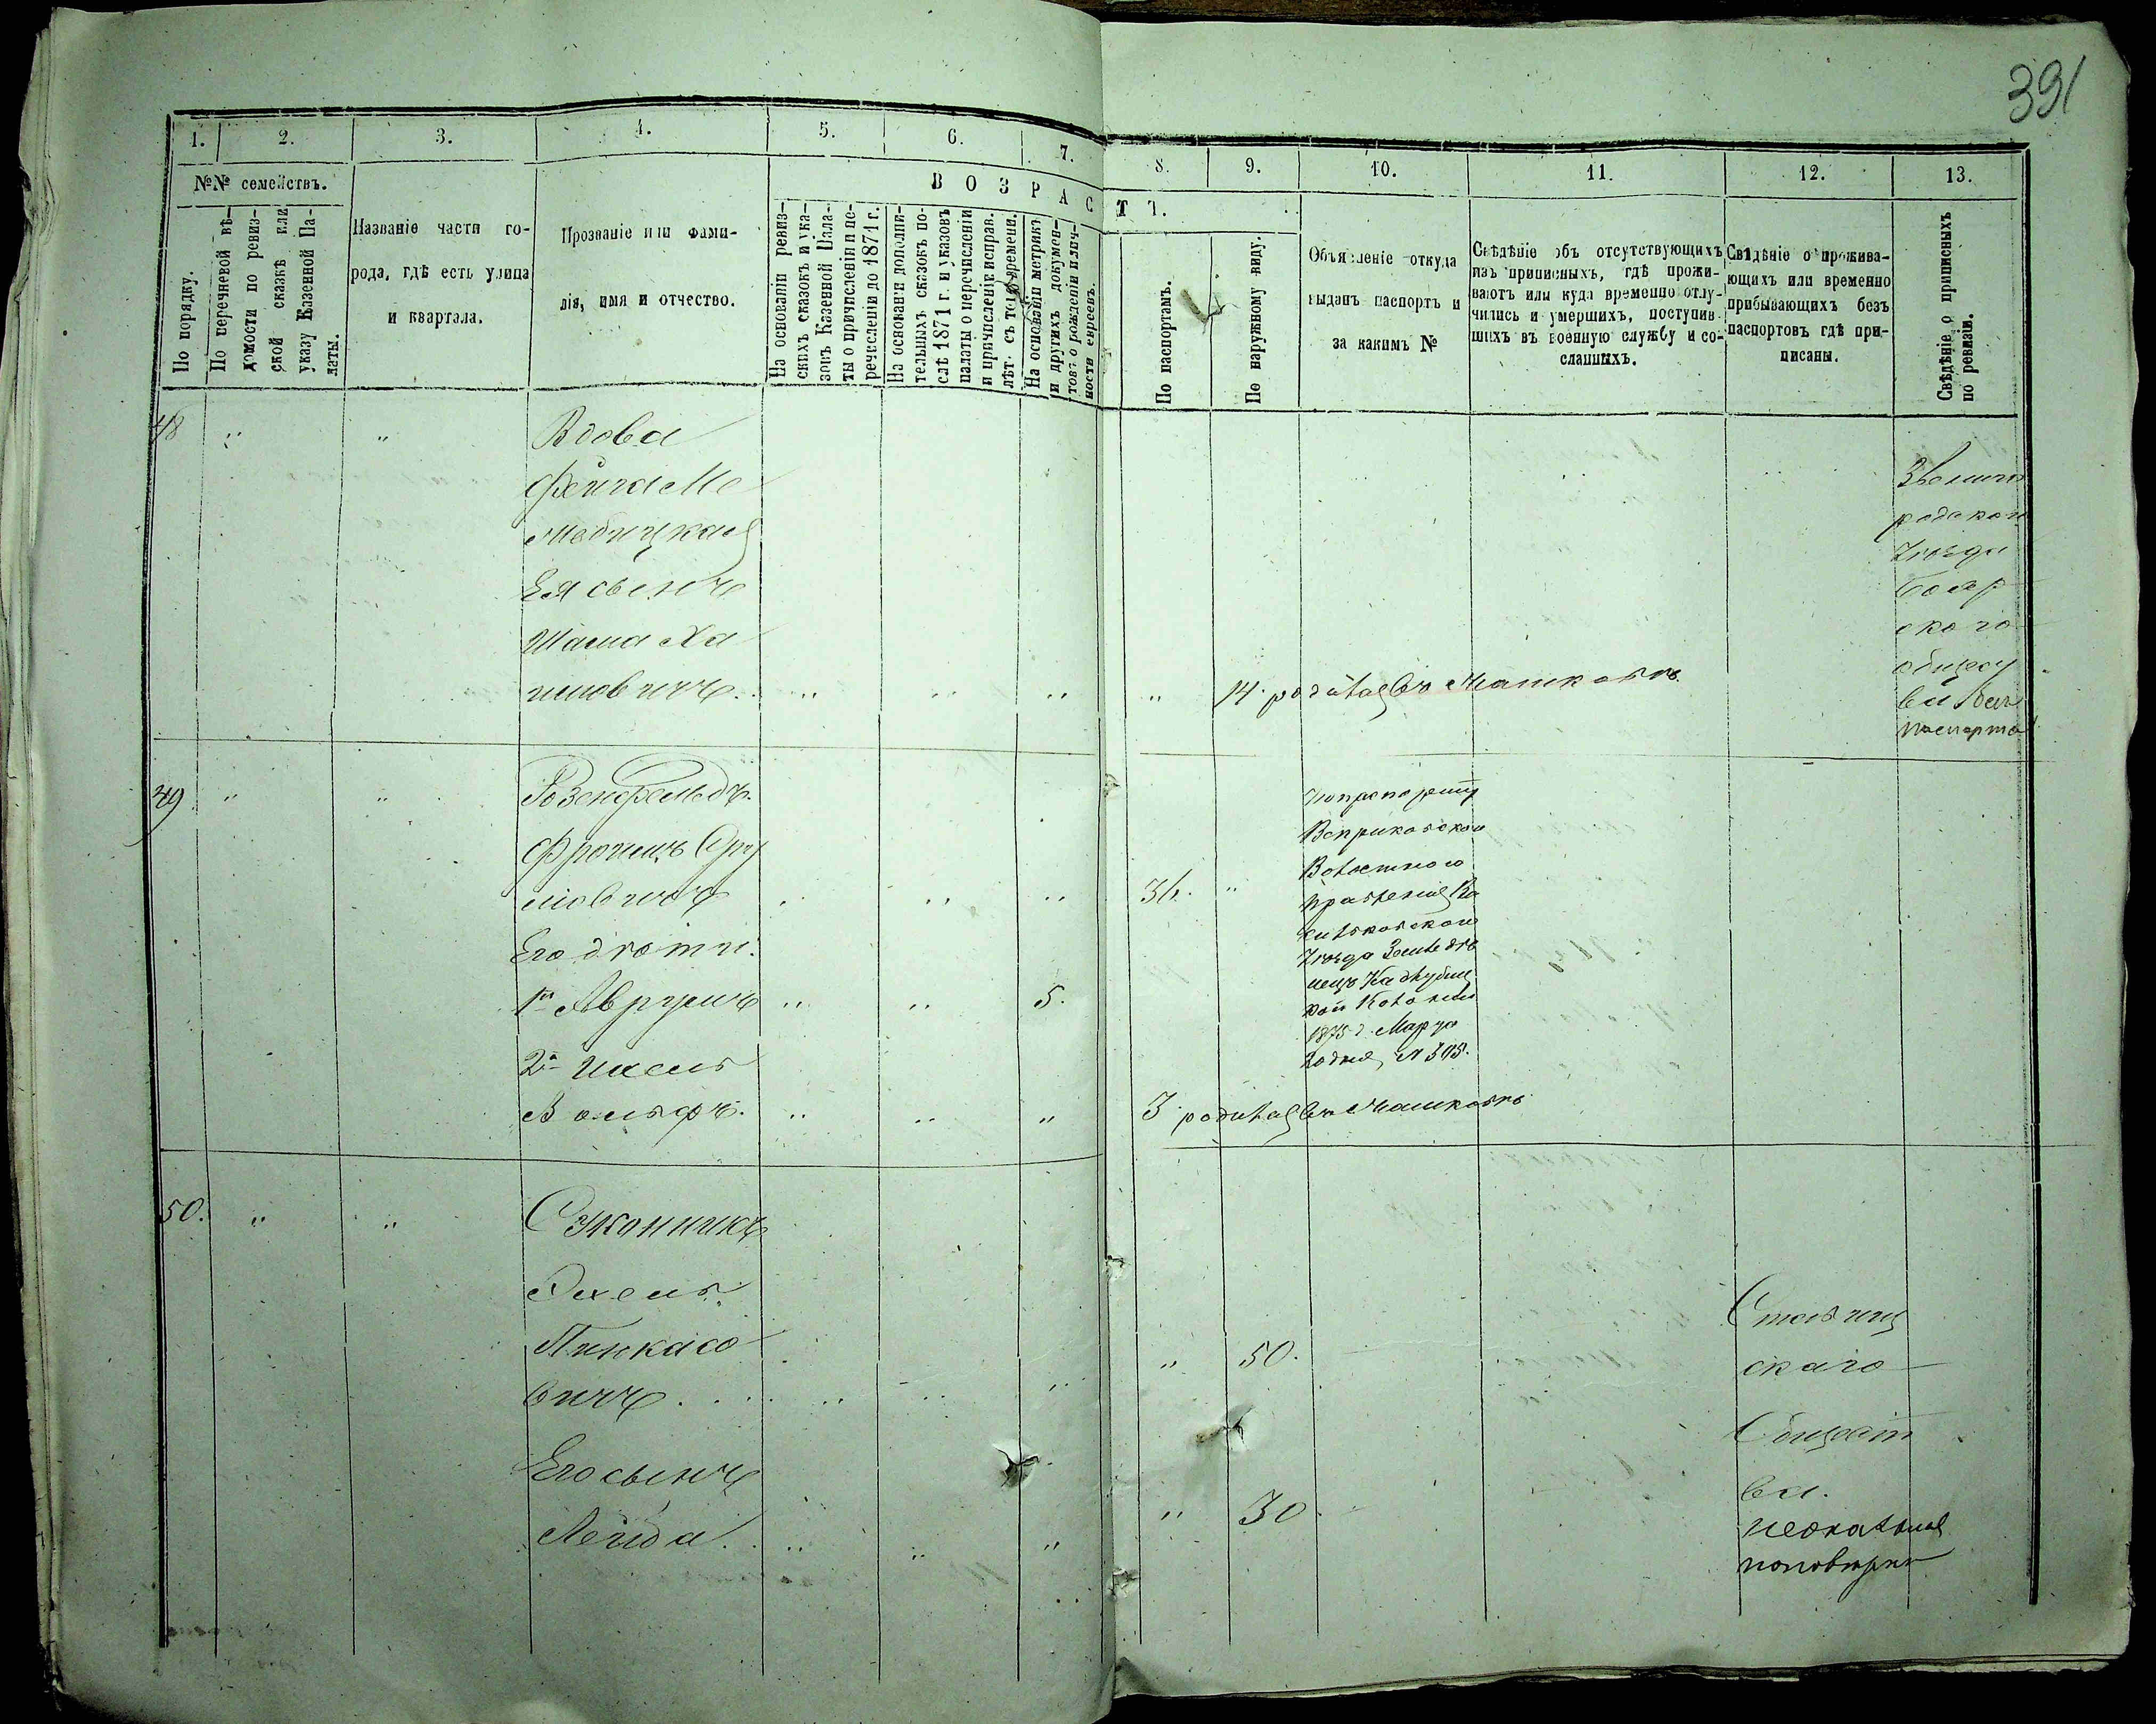 391
1. 2. 3. 4. 5. 6. 7. 8. 9. 10. 11. 12. 13.
№№ семействъ.
По порядку.
По перечневой вѣ-
домости по ревиз-
ской сказкѣ или
указу Казенной Па-
латы.
Названіе части го-
рода, гдѣ есть улица
и квартала.
Прозваніе или фами-
лія, имя и отчество.
ВОЗРАСТЪ.
На основаніи ревиз-
скихъ сказокъ и ука-
зовъ Казенной Пала-
ты о причисленіи и пе-
речисленіи до 1871 г.
На основаніи дополни-
тельныхъ сказокъ по-
слѣ 1871 г. и указовъ
палаты о перечисленіи
и причисленіи исправ.
лѣт. съ того времени.
На основаніи метрикъ
и другихъ докумен-
товъ о рожденіи и лич-
ности евреевъ.
По паспортамъ.
По наружному виду.
Объявленіе откуда
выданъ паспортъ и
за какимъ №
Свѣдѣніе объ отсутствующихъ
изъ приписныхъ, гдѣ прожи-
ваютъ или куда временно отлу-
чились и умершихъ, поступив-
шихъ въ военную службу и со-
сланныхъ.
Свѣдѣніе о прожива-
ющихъ или временно
прибывающихъ безъ
паспортовъ гдѣ при-
писаны.
Свѣдѣніе о приписныхъ
по ревизіи.
48 " " Вдова
Фейга Ме
Ея сынъ
Шама Ха
имовичъ. " " " " 14.
Звениго
родскаго
Уѣзда
Бояр
скаго
общест
ва безъ
паспорта
49 " " Розенфельдъ
Фроимъ Сру
лиовичъ " " " 36. "
Его дѣти:
1й Аврумъ " " 5.
2й Ицель
Вольфъ. " " " 3
Волостного
правленія Ва
сильковскаго
Уѣзда Землед ѣ
лецъ
1875 г. Марта
№ 595.
50. " " Сэконникъ
Эхель
Пинкасо
вичъ " " " " 50.
Его сынъ
Лейба. " " " " 30
скаго
Общест
ва.